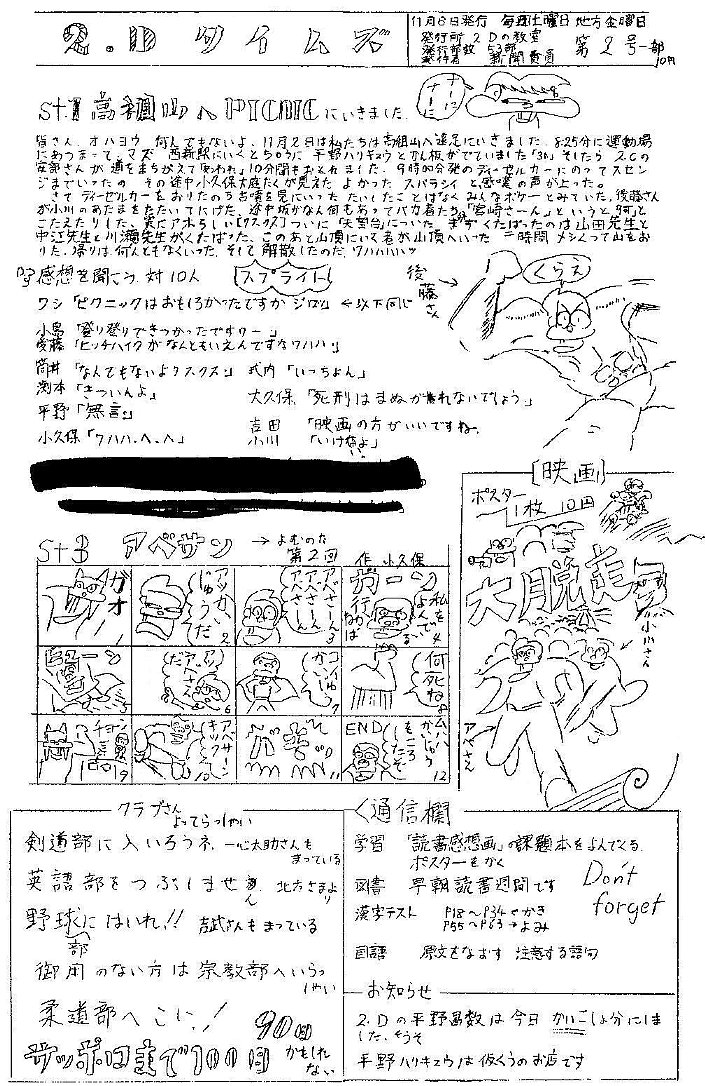 2.D タイムズ
11月8日発行 毎週土曜日 地方金曜日
発行所 2Dの教室
発行部数 53部
発行者 新聞委員
第2号 一部
10円
St.1 高祖山へPICNICにいきました。
ナーに
ナーに
皆さん、オハヨウ、何んでもないよ、11月2日は私たちは高祖山へ遠足にいきました。8:25分に運動場
にあつまって、マズ、西新駅にいくとちゅうに平野ハリキュウとかん板がでていました「3a」そしたら2.Cの
10分間をおくれました。9時00分発のディーゼルカーにのってスセン
ジまでいったの、その途中小久保大庭たくが見えた よかった スバラシイ と感嘆の声が上った。
さて ディーゼルカーをおりたのち古墳を見にいった たいしたことはなく みんなボケーとみていた。後藤さん
が小川のあたまをたたいてにげた。途中坂がなん何もあってバカ者たち「宮崎さーん」というと「何」と
こたえたりした、実にアホらしい【クスクス】ついに「天望台」についた まずくたばったのは山田先生と
中江先生と川瀬先生がくたばった。このあと山頂にいく者が山頂へいった 二時間 メシくって山をお
りた、帰りは何んともなくいった。そして解散したのだ、ワハハハハッ
感想を聞こう 対10人
スプライト
ワシ「ピクニックはおもしろかったですか ジロッ」 ←以下同じ
小島「登り登りできつかったですワー」
後藤「ヒッチハイクがなんともいえんですなワハハ」
筒井「なんでもないよクスクス」 武内「いっちょん」
渕本「きついんよ」 大久保「死刑はまぬがれないでしょう」
平野「無言」 吉田「映画の方がいいですね。
小久保「ワハハ、へ、へ」 小川「いけねよ」
後藤さん
くらえ
[映画]
ポスター
1枚 10円
大脱走
小川さん
アベさん
St3 アベサン →よむのだ 第2回 作 小久保
ガオー
1
アッカイじゅうだ
2
アベさーんアベさーん
3
ガーン
私をよんでいる
行かねば
4
ビューン
5
アッアベさんだ
6
かいじゅうコイ
7
何 死ね
8
チョン
9
アベサーンキック
10
ガオー
11
ムハハ かいじゅうをころしたぞ
END
12
クラブさん
よってらっしゃい
剣道部に入いろうネ 一心太助さんもまっている
英語部をつぶしませう 北方さまより
野球部にはいれ!! 古武さんもまっている
御用のない方は宗教部へいらっしゃい
柔道部へこい! 90日
サッポロまで100日かもしれない
<通信欄
学習 「読書感想画」の課題本をよんでくる
ポスターをかく
図書 早朝読書週間です
漢字テスト P18〜P34→かき
P55〜P63→よみ
国語 原文をなおす 注意する語句
Don't forget
お知らせ
2.Dの平野昌数は今日 かいこしょ分にしま
した。そうぞ
平野ハリキュウは仮くうのお店です